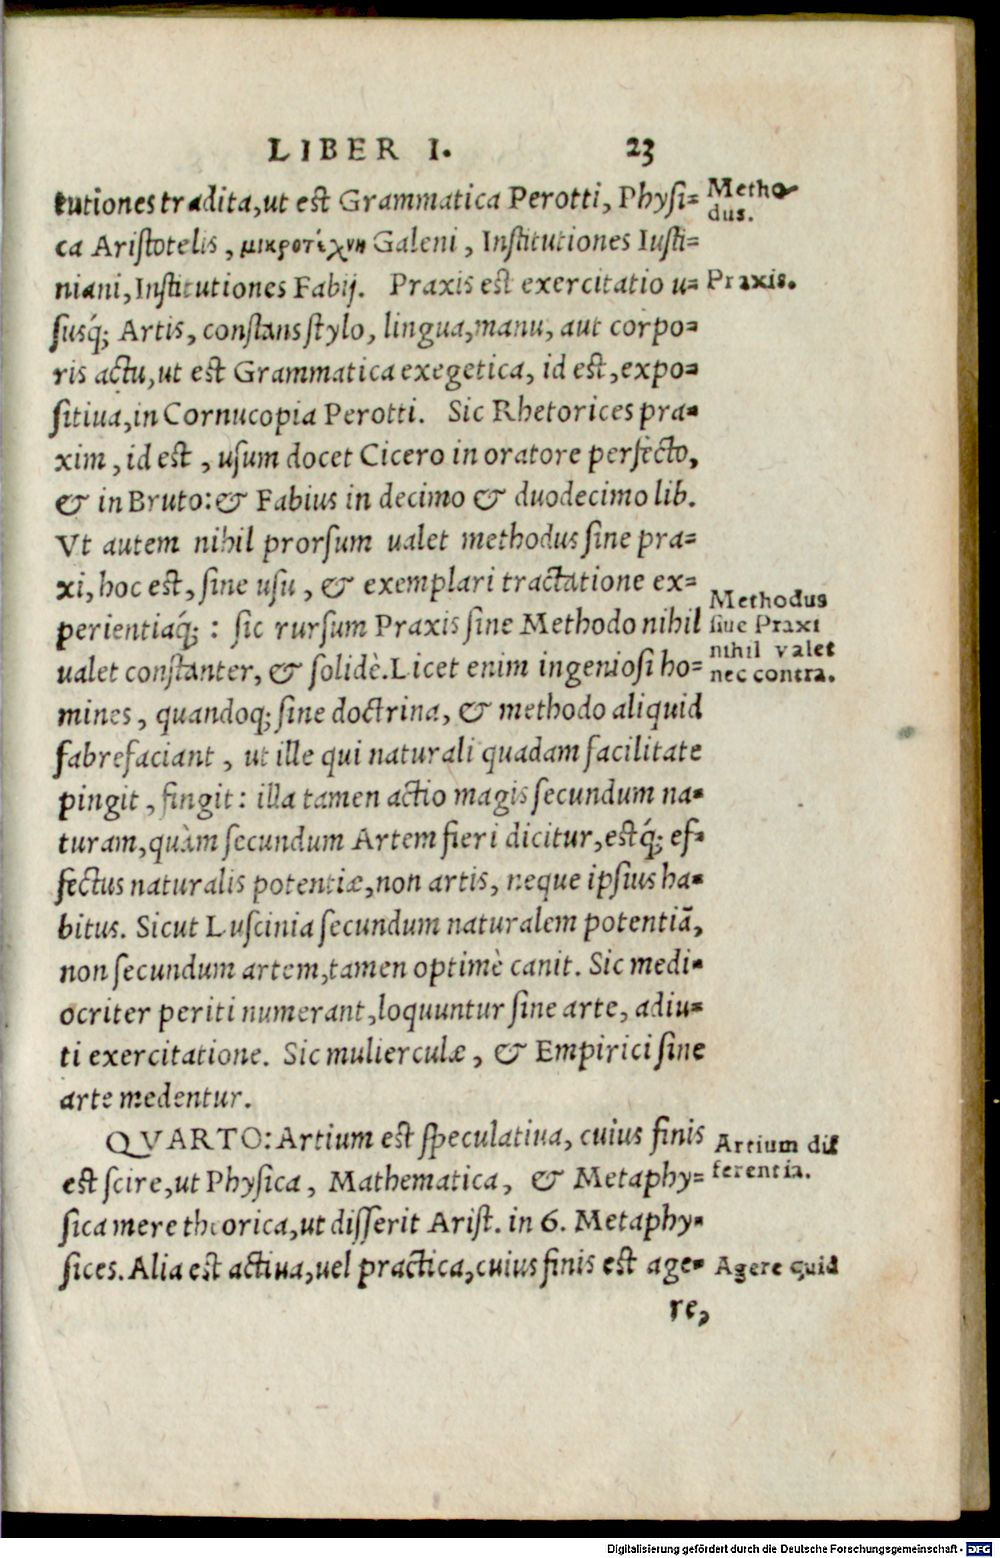 LIBER I. 23
tutiones tradita, ut est Grammatica Perotti, Physi-
ca Aristotelis, μικροτέχνη Galeni, Institutiones Iusti-
niani, Institutiones Fabij. Praxis est exercitatio u-
susq́; Artis, constans stylo, lingua, manu, aut corpo-
ris actu, ut est Grammatica exegetica, id est, expo-
sitiua, in Cornucopia Perotti. Sic Rhetorices pra-
xim, id est, usum docet Cicero in oratore perfecto,
& in Bruto: & Fabius in decimo & duodecimo lib.
Vt autem nihil prorsum ualet methodus sine pra-
xi, hoc est, sine usu, & exemplari tractatione ex-
perientiaq́;: sic rursum Praxis sine Methodo nihil
ualet constanter, & solidè. Licet enim ingeniosi ho-
mines, quandoq; sine doctrina, & methodo aliquid
fabrefaciant, ut ille qui naturali quadam facilitate
pingit, fingit: illa tamen actio magis secundum na-
turam, quàm secundum Artem fieri dicitur, estq́; ef-
fectus naturalis potentiæ, non artis, neque ipsius ha-
bitus. Sicut Luscinia secundum naturalem potentiã,
non secundum artem, tamen optimè canit. Sic medi-
ocriter periti numerant, loquuntur sine arte, adiu-
ti exercitatione. Sic mulierculæ, & Empirici sine
arte medentur.
QVARTO: Artium est speculatiua, cuius finis
est scire, ut Physica, Mathematica, & Metaphy-
sica mere theorica, ut disserit Arist. in 6. Metaphy-
sices. Alia est actiua, uel practica, cuius finis est age-
re,
Metho-
dus.
Praxis.
Methodus
siue Praxi
nihil valet
nec contra.
Artium dif
ferentia.
Agere quid
Digitalisierung gefördert durch die Deutsche Forschungsgemeinschaft - DFG